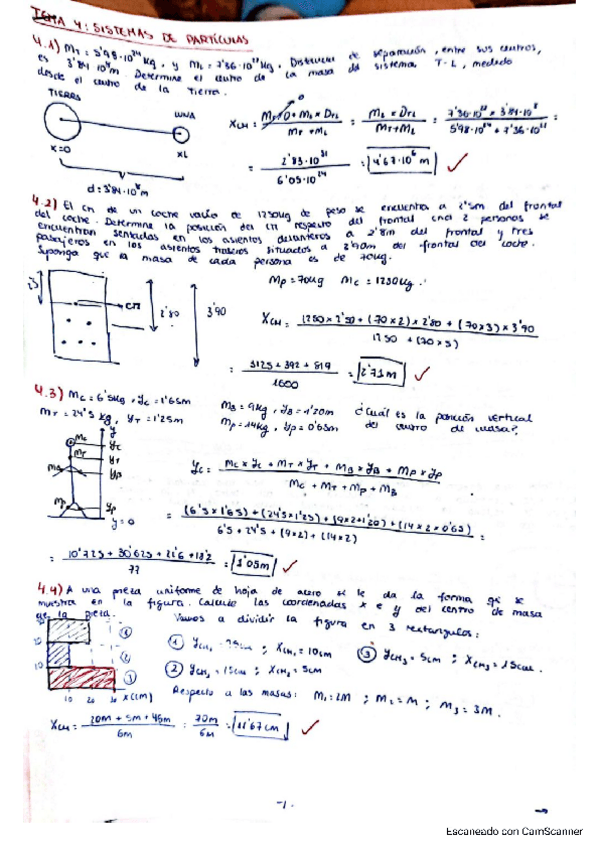 TEMA 4: SISTEMAS DE PARTÍCULAS
4.1) MT = 5'98·10²⁴ kg, y ML = 7'36·10²² kg. Distancia de separación, entre sus centros,
es 3'84·10⁸m Determine el centro de la masa del sistema T-L, medido
desde el centro de la Tierra.
TIERRA
LUNA
X=0
XL
d = 3'84·10⁸m
XCM = MT·0 + ML × DTL / MT + ML = ML × DTL / MT + ML = 7'36·10²² × 3'84·10⁸ / 5'98·10²⁴ + 7'36·10²²
0
= 2'83·10³¹ / 6'05·10²⁴ = 4'67·10⁶ m ✓
4.2) El CM de un coche vacío de 1250kg de peso se encuentra a 2'5m del frontal
del coche. Determine la posición del CM respecto del frontal cuando 2 personas se
encuentran sentadas en los asientos delanteros a 2'8m del frontal y tres
pasajeros en los asientos traseros situados a 3'90m del frontal del coche.
Suponga que la masa de cada persona es de 70kg.
2'5
CM
2'80
3'90
Mp = 70kg Mc = 1250kg.
XCM = (1250 × 2'50 + (70×2) × 2'80 + (70×3) × 3'90 / 1250 + (70×5)
= 3125 + 392 + 819 / 1600 = 2'71m ✓
4.3) Mc = 6'5kg, Yc = 1'65m
MT = 24'5 kg, YT = 1'25m
MB = 9kg, YB = 1'20m
Mp = 14kg, Yp = 0'65m
¿Cuál es la posición vertical
del centro de masa?
y
Mc
Yc
MT
YT
MB
Mp
Yp
y = 0
Yc = Mc × Yc + MT × YT + MB × YB + Mp × Yp / Mc + MT + Mp + MB
= (6'5 × 1'65) + (24'5 × 1'25) + (9×2×1'20) + (14×2×0'65) / 6'5 + 24'5 + (9×2) + (14×2) =
= 10'725 + 30'625 + 21'6 + 18'2 / 77 = 1'05m ✓
4.4) A una pieza uniforme de hoja de acero se le da la forma que se
muestra en la figura. Calcule las coordenadas x e y del centro de masa
de la pieza.
Vamos a dividir la figura en 3 rectángulos:
① YCM1 = 25cm ; XCM1 = 10cm
② YCM2 = 15cm ; XCM2 = 5cm
③ YCM3 = 5cm ; XCM3 = 15cm.
10
10
10 20 30 X(cm)
①
②
③
Respecto a las masas: M1 = 2M ; M2 = M ; M3 = 3M.
XCM = 20m + 5m + 45m / 6m = 70m / 6m = 11'67cm ✓
-1-
Escaneado con CamScanner